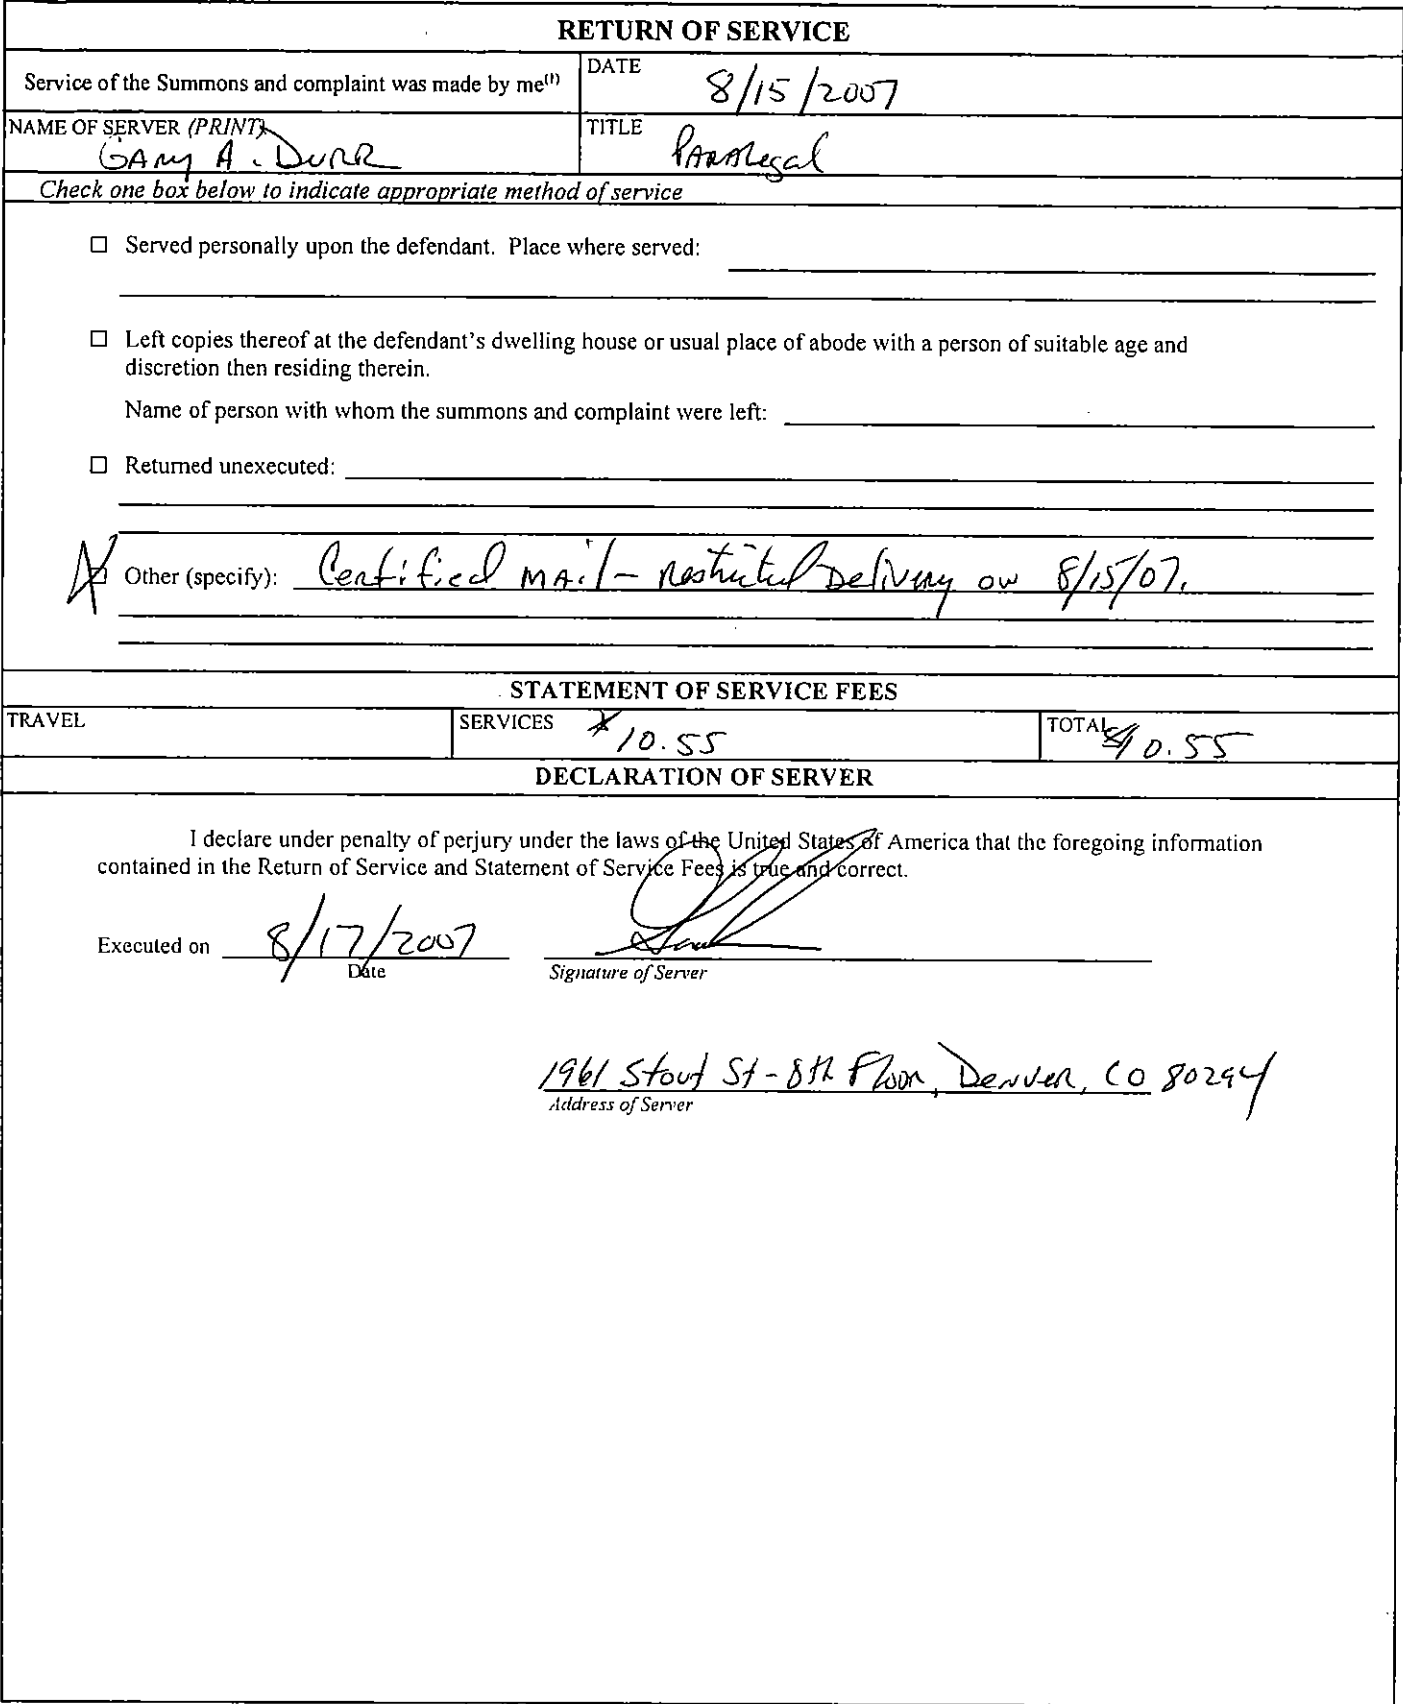 RETURN OF SERVICE
Service of the Summons and complaint was made by me(1)
DATE
8/15/2007
NAME OF SERVER (PRINT)
GARY A. DURR
TITLE
PARAlegal
Check one box below to indicate appropriate method of service
☐ Served personally upon the defendant. Place where served:
☐ Left copies thereof at the defendant's dwelling house or usual place of abode with a person of suitable age and
discretion then residing therein.
Name of person with whom the summons and complaint were left:
☐ Returned unexecuted:
☒ Other (specify): Certified MAil - Restricted Delivery on 8/15/07.
STATEMENT OF SERVICE FEES
TRAVEL
SERVICES $10.55
TOTAL $10.55
DECLARATION OF SERVER
I declare under penalty of perjury under the laws of the United States of America that the foregoing information
contained in the Return of Service and Statement of Service Fees is true and correct.
Executed on 8/17/2007
Date
Signature of Server
1961 Stout St - 8th Floor, Denver, CO 80294
Address of Server